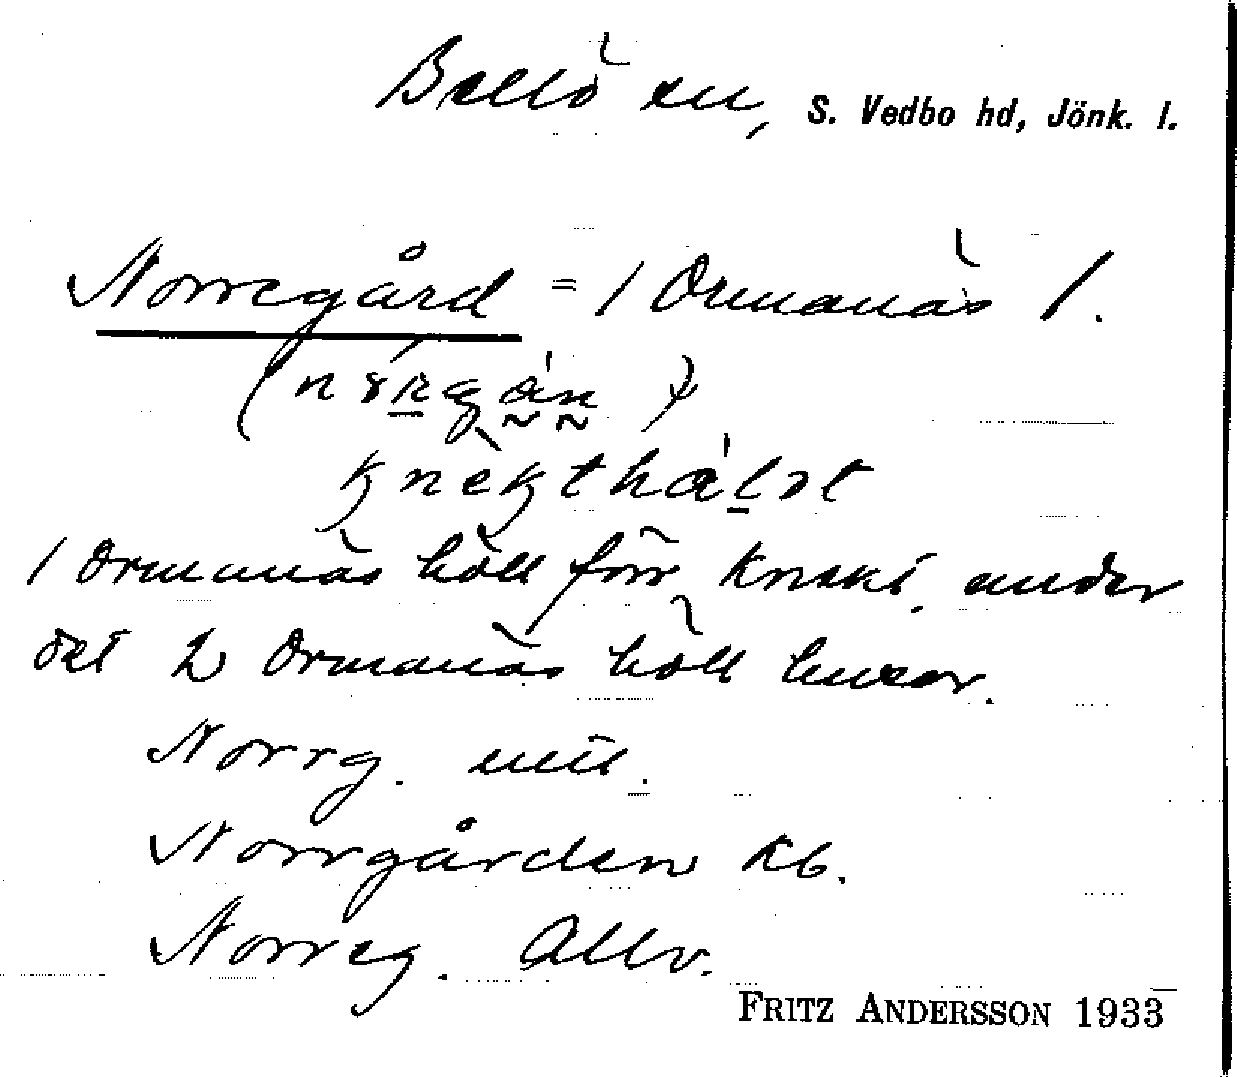 Bellö sn, S. Vedbo hd, Jönk. l.
Norregård = 1 Ormanäs 1.
knèkthålst
1 Ormanäs höll förr knekt, under
det 2 Ormanäs höll husar.
Norrg. utt.
Norrgården kb.
Norreg. Allv.
FRITZ ANDERSSON 1933